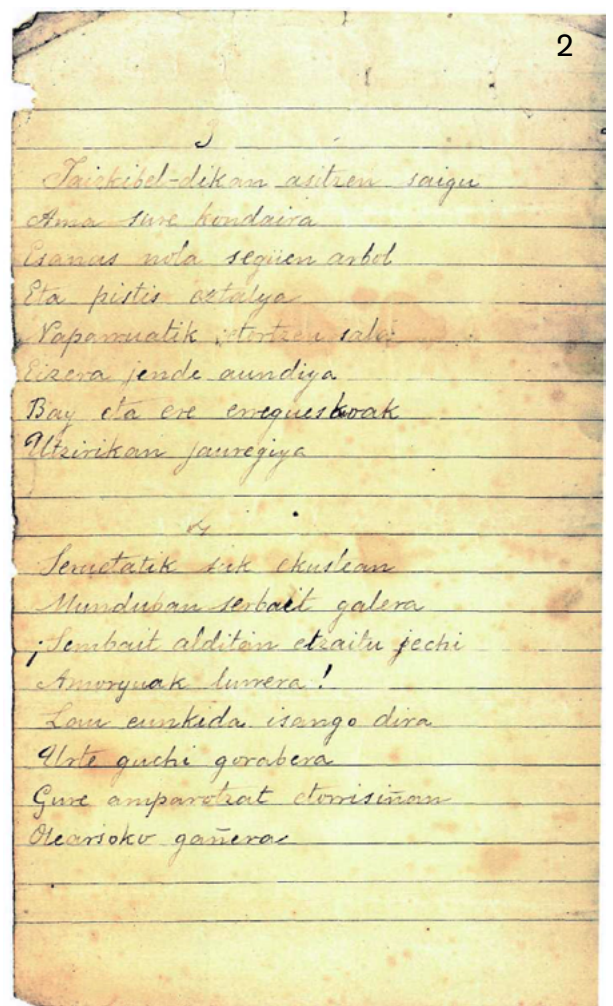 2
3
Jaiskibel-dikan asitzen saigu
Ama sure kondaira
Esanas nola seguen arbol
Eta pistis oztalya
Naparruatik etortzen sala
Eizera jende aundiya
Bay eta ere erregueskoak
Utzirikan jauregiya
4
Seruetatik suk ekustean
Munduban serbait galera
¡Sembait alditan etzaitu jechi
Amoryuak lurrera!
Lau eunkida isango dira
Urte guchi gorabera
Gure amparotzat etorrisiñan
Olearsoko gañera